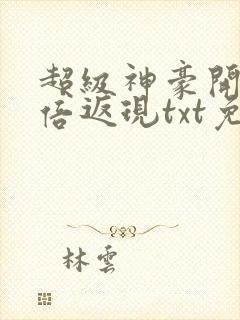 超級神豪開
倍返現txt免
林雲